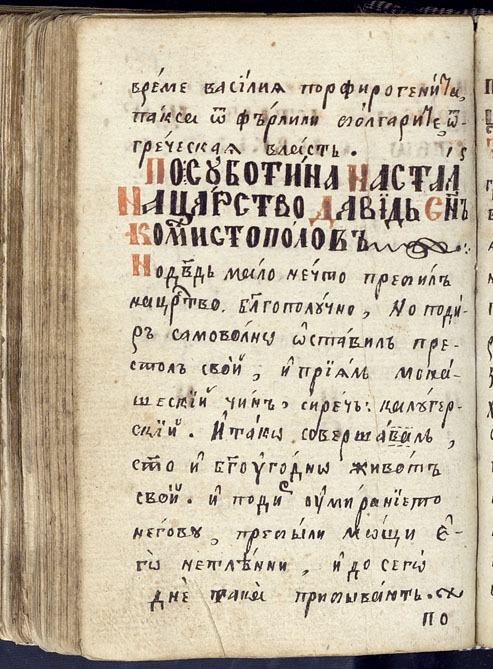 време василия порфирогенита,
пакси ѿ фърлили болгарите ѿ
греческая власть.
По суботина настал
на царство давїдь сн҃ъ
комистополовъ
Но дв҃дь мало нечто пребилъ
на црт҃во. бл҃гополучно, но поди-
ръ самоволнѡ ѡставилъ пре-
столъ свой, и прїялъ мона-
шескїй чинъ, сиречь: калугер-
скїй. И такѡ совершавалъ,
ст҃о и бг҃оугоднѡ животъ
свой. и подиръ оумиранїето
негово, пребыли мѡщи е-
гѡ нетлѣнни, и до сегѡ
дне такѡ пребывають.
по